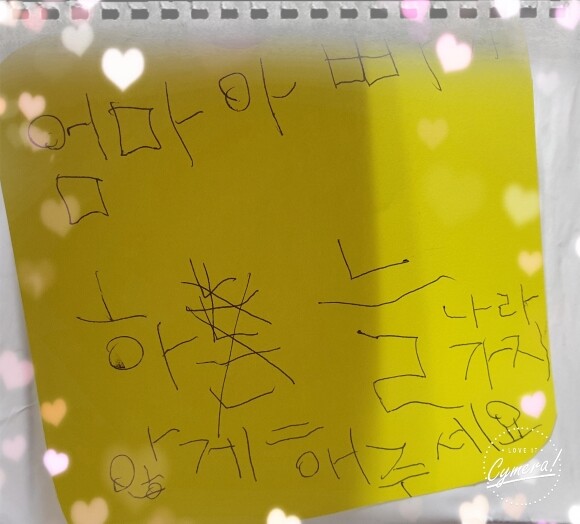 엄마 아빠
하늘나라
가지
않게 해주세요
LOVE IT
Cymera!